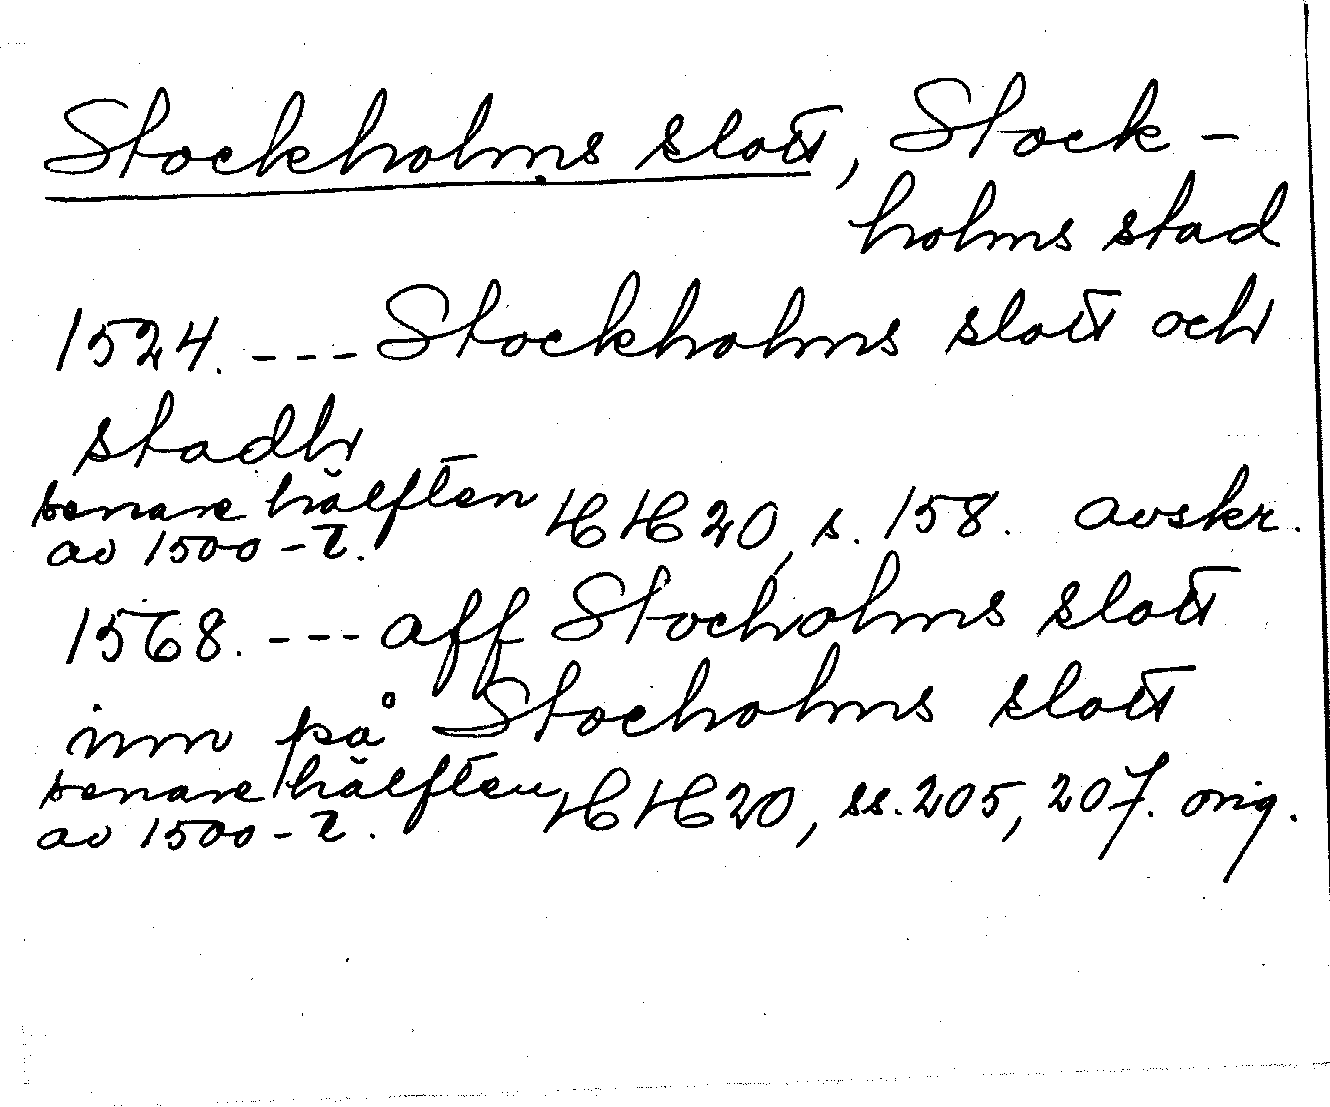 Stockholms slott, Stock-
holms stad
1524. --- Stockholms slott och
stadh
senare hälften
av 1500-t. HH 20, s. 158. avskr.
1568. --- aff Stocholms slott
inn på Stocholms slott
senare hälften
av 1500-t. HH 20, ss. 205, 207. orig.